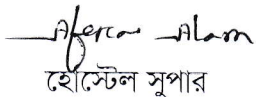 Afroza Alam
হোস্টেল সুপার